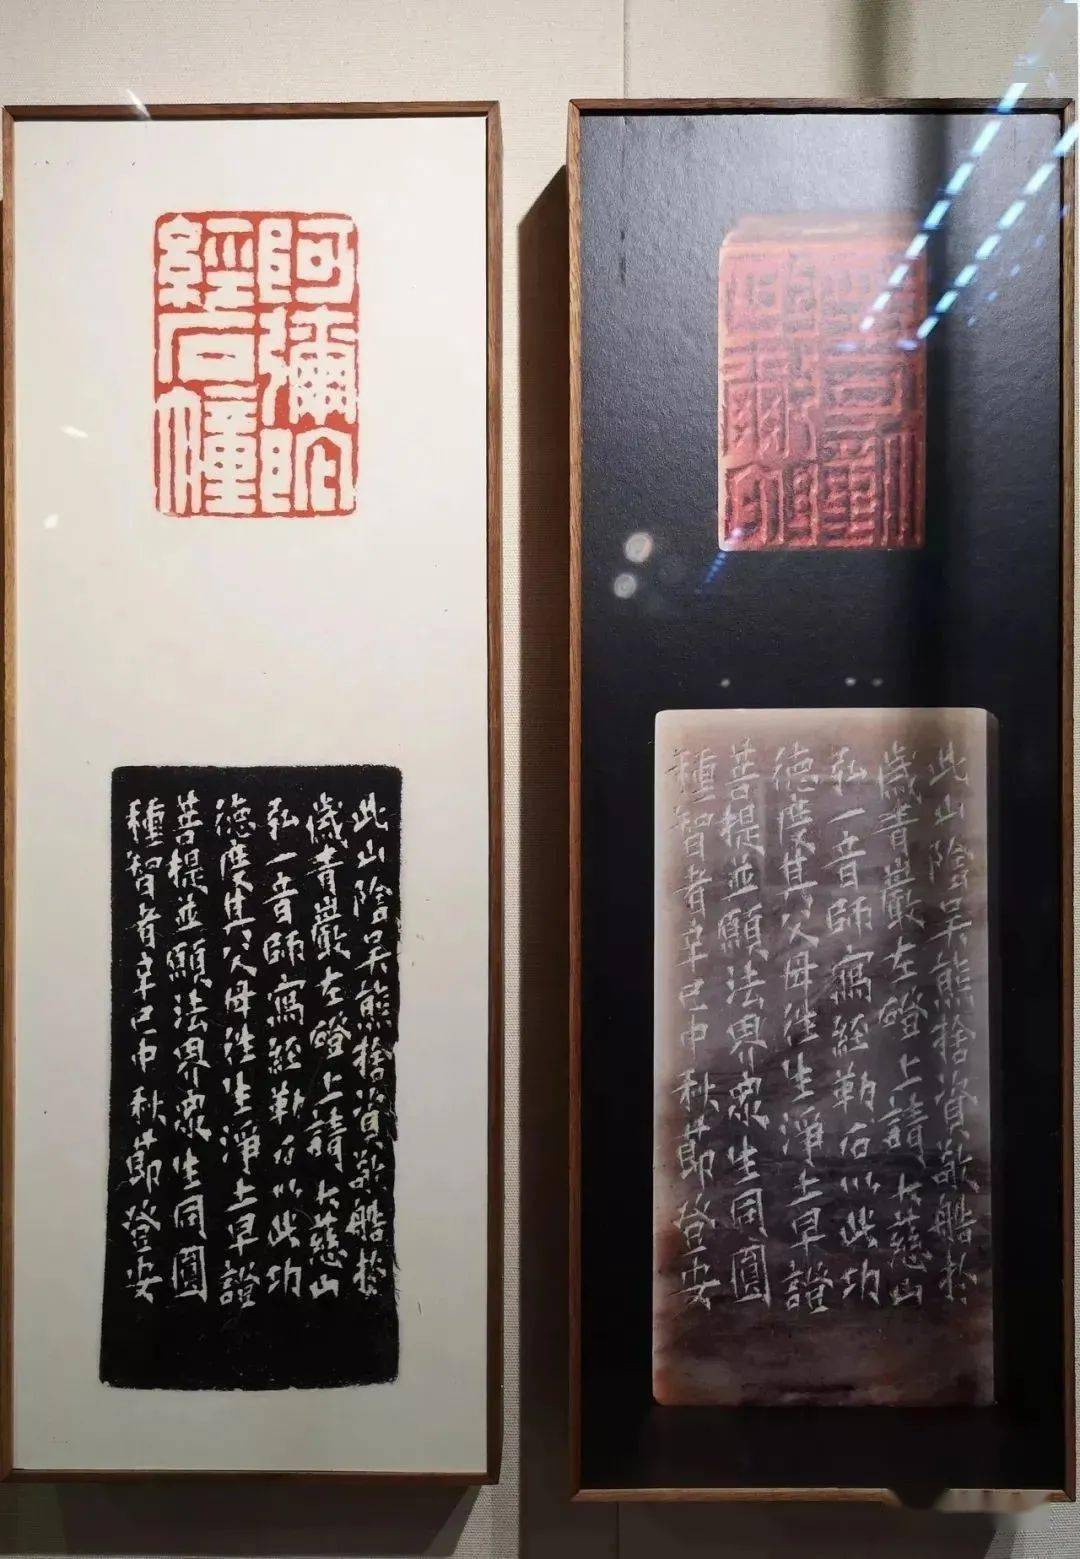 阿彌陀
經石幢
此山陰吳熊捨資敬艁於
歲青巖左磴上請大慈山
弘一音師寫經勒石以此功
德度其父母往生淨土早證
菩提並願法界眾生同圓
種智者辛巳中秋節登安
阿彌陀
經石幢
此山陰吳熊捨資敬艁於
歲青巖左磴上請大慈山
弘一音師寫經勒石以此功
德度其父母往生淨土早證
菩提並願法界眾生同圓
種智者辛巳中秋節登安